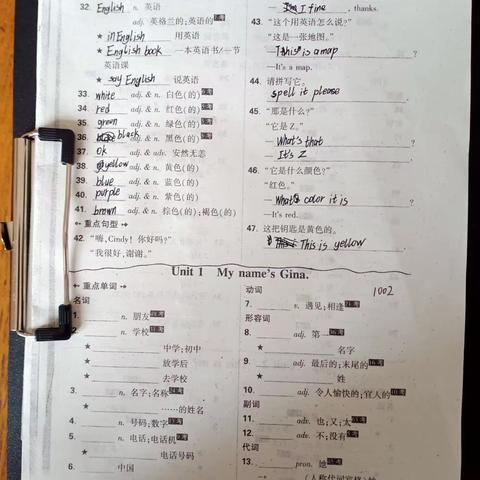 32. English n. 英语
adj. 英格兰的;英语的
★ in English 用英语
★ English book 一本英语书/一节
英语课
★ say English 说英语
33. white adj. & n. 白色(的)
34. red adj. & n. 红色(的)
35. green adj. & n. 绿色(的)
36. black adj. & n. 黑色(的)
37. ok adj. & adv. 安然无恙
38. yellow adj. & n. 黄色(的)
39. blue adj. & n. 蓝色(的)
40. purple adj. & n. 紫色(的)
41. brown adj. & n. 棕色(的);褐色(的)
重点句型
42. “嗨,Cindy! 你好吗?”
“我很好,谢谢。”
— I fine , thanks.
43. “这个用英语怎么说?”
“这是一张地图。”
— This is a map ?
—It's a map.
44. 请拼写它。
spell it please
45. “那是什么?”
“它是 Z。”
— What's that ?
— It's Z
46. “它是什么颜色?”
“红色。”
— What's color it is ?
—It's red.
47. 这把钥匙是黄色的。
This is yellow
Unit 1 My name's Gina.
重点单词
名词
1. n. 朋友
2. n. 学校
★ 中学;初中
★ 放学后
★ 去学校
3. n. 名字;名称
★ ……的姓名
4. n. 号码;数字
5. n. 电话;电话机
★ 电话号码
6. 中国
动词
1002
7. v. 遇见;相逢
形容词
8. adj. 第一
★ 名字
9. adj. 最后的;末尾的
★ 姓
10. adj. 令人愉快的;宜人的
副词
11. adv. 也;又;太
12. adv. 不;没有
代词
13. pron. 她